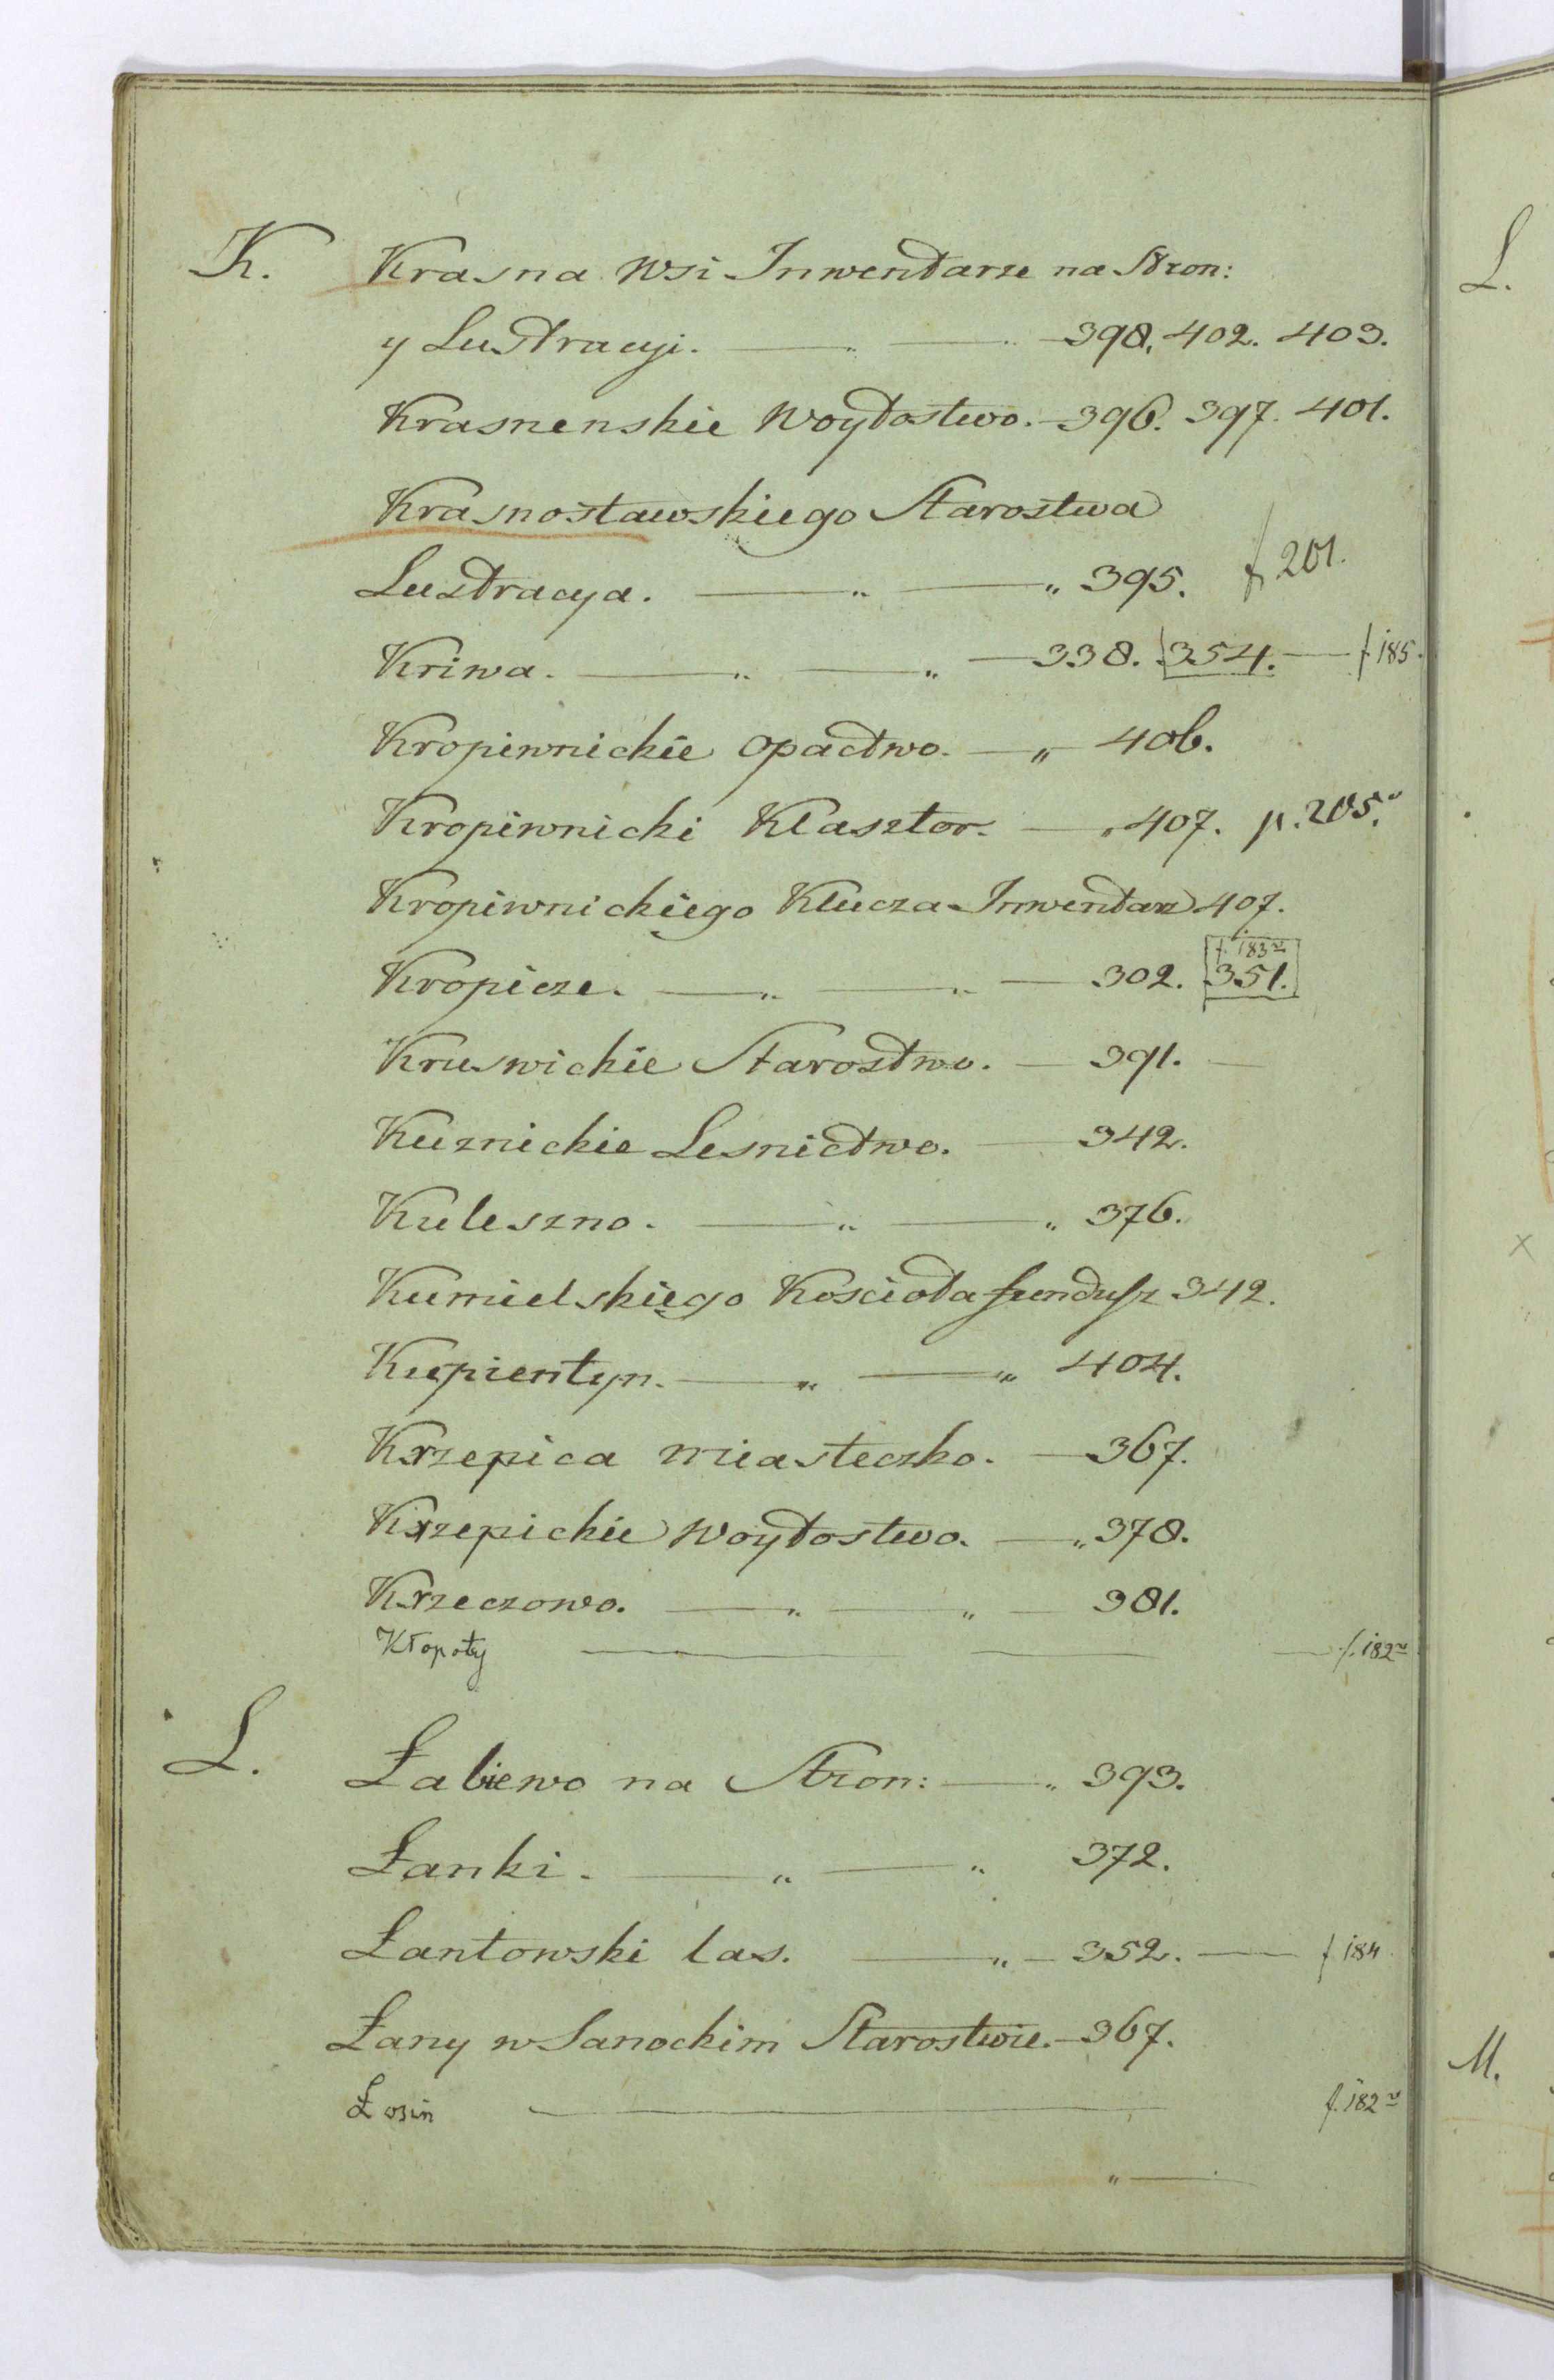 K. Krasna wsi Inwentarze na Stron:
y Lustracyi. — „ — „ 398. 402. 403.
Krasnenskie Woytostwo. — 396. 397. 401.
Krasnostawskiego Starostwa
Lustracya. — „ — „ 395. f. 201.
Kriwa. — „ — „ — 338. 354. — f. 185.
Kropiwnickie Opactwo. — „ 406.
Kropiwnicki Klasztor. — „ 407. p. 205.v
Kropiwnickiego Klucza Inwentarz 407.
f. 183v
Kropicze. — „ — „ — 302. 351.
Kruswickie Starostwo. — 391. —
Kuznickie Lesnictwo. — 342.
Kuleszno. — „ — „ 376.
Kumielskiego Kosciola fundusz 342.
Kupientyn. — „ — „ 404.
Krzepica miasteczko. — 367.
Krzepickie Woytostwo. — „ 378.
Krzeczowo. — „ — „ — 381.
Kłopoty — — — f. 182v
L. Łabiewo na Stron: — „ 393.
Łanki. — „ — „ 372.
Łantowski las. — „ — 352. — f. 184
Łany w Sanockim Starostwie. — 367.
Łosin — f. 182v
„ —
L.
M.